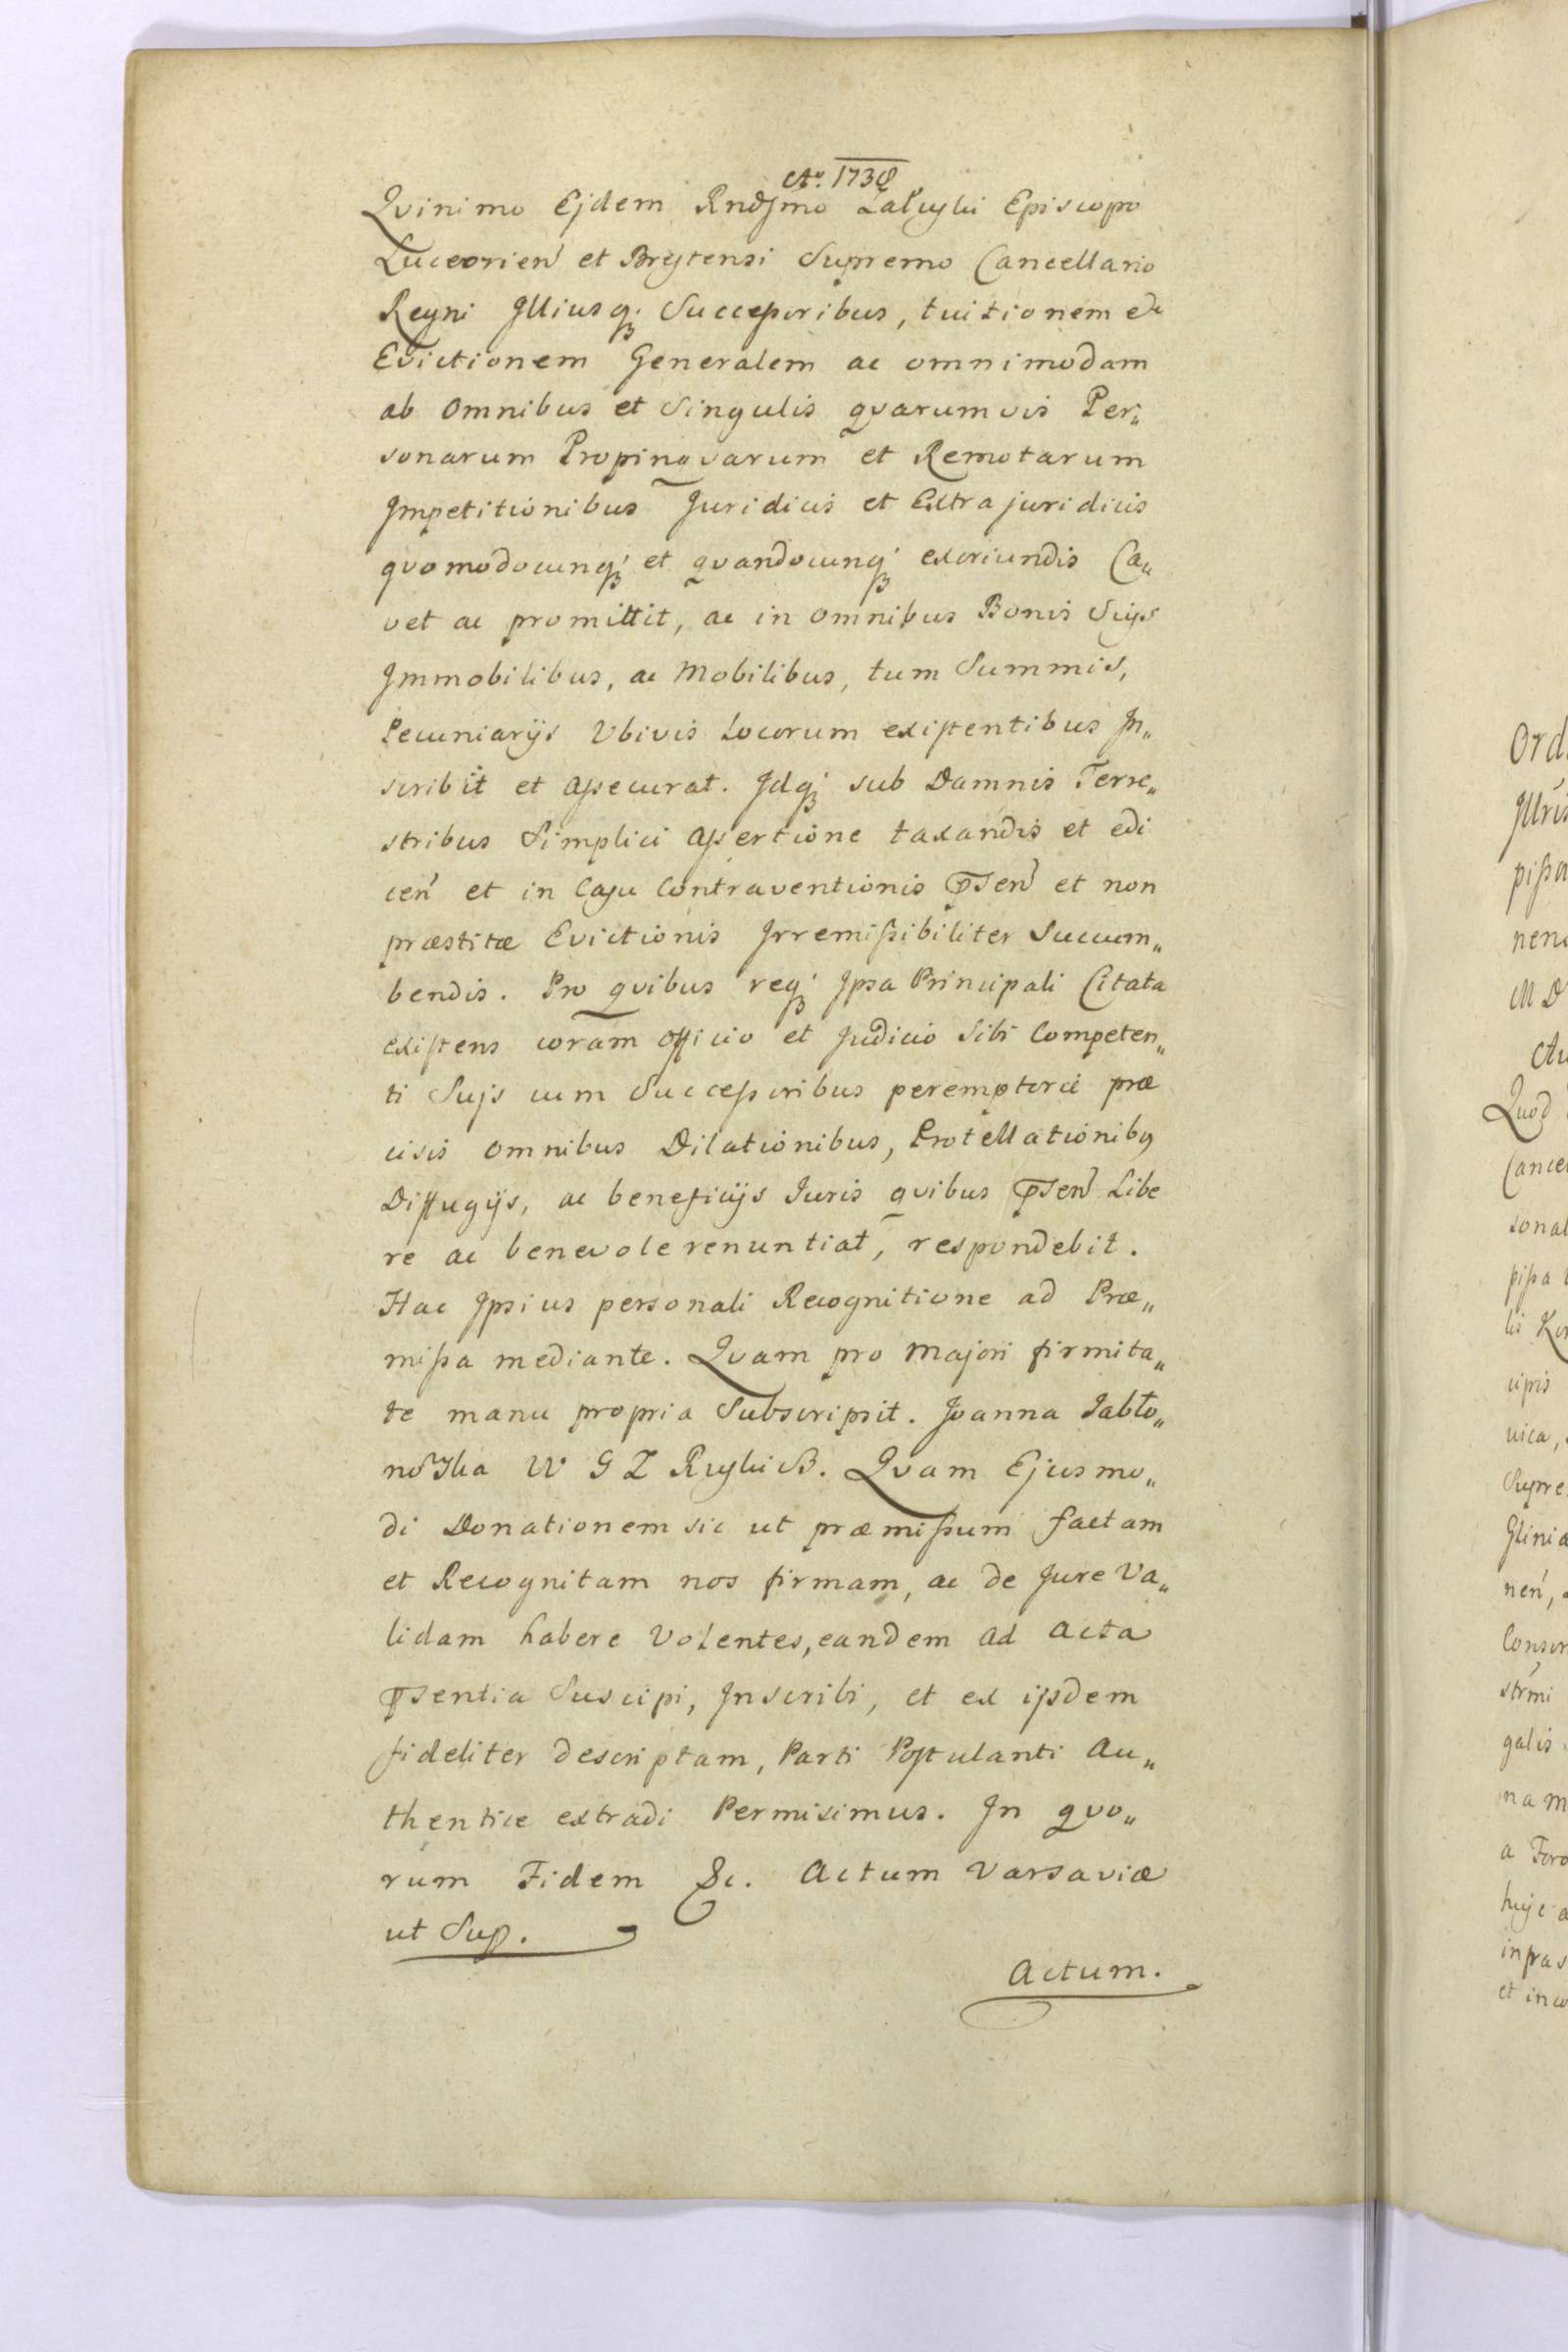 Ao. 1738
Qvinimo Ejdem Rndsmo Załuski Episcopo
Luceorien et Brestensi Supremo Cancellario
Regni Illiusq; Successoribus, tuitionem et
Evictionem Generalem ac omnimodam
ab omnibus et Singulis qvarumvis Per„
sonarum Propinqvarum et Remotarum
Impetitionibus Juridicis et Extrajuridicis
qvomodocunq; et qvandocunq; exoriundis Ca„
vet ac promittit, ac in omnibus Bonis Suys
Immobilibus, ac Mobilibus, tum Summis,
Pecuniarijs Vbivis Locorum existentibus In„
scribit et assecurat. Idq; sub Damnis Terre„
stribus Simplici assertione taxandis et edi
cen et in Casu Contraventionis psen et non
præstitæ Evictionis Irremissibiliter Succum„
bendis. Pro qvibus req; Ipsa Principali Citata
existens coram officio et Judicio Sibi Competen„
ti Sujs cum Successoribus peremptorie præ
cisis omnibus Dilationibus, Protellationibg
Diffugijs, ac beneficijs Juris qvibus psen Libe
re ac benevole renuntiat, respondebit.
Hac Ipsius personali Recognitione ad Præ„
missa mediante. Qvam pro Majori firmita„
te manu propria Subscripsit. Joanna Jabło„
nowska W G Z Ruski B. Qvam Ejusmo„
di Donationem sic ut præmissum factam
et Recognitam nos firmam, ac de Jure Va„
lidam habere Volentes, eandem ad acta
psentia Suscipi, Inscribi, et ex ijsdem
fideliter descriptam, Parti Postulanti au„
thentice extradi Permisimus. In qvo„
rum Fidem &c. Actum Varsaviæ
ut Sup.
Actum.
Ord
pissa
nen
in D
Qvod
Cance
sonal
pissa
lis
cipis
vica,
Supre
Glinia
nen,
Conser
strmi
galis
nam
a Foro
hujc a
infras
et inco